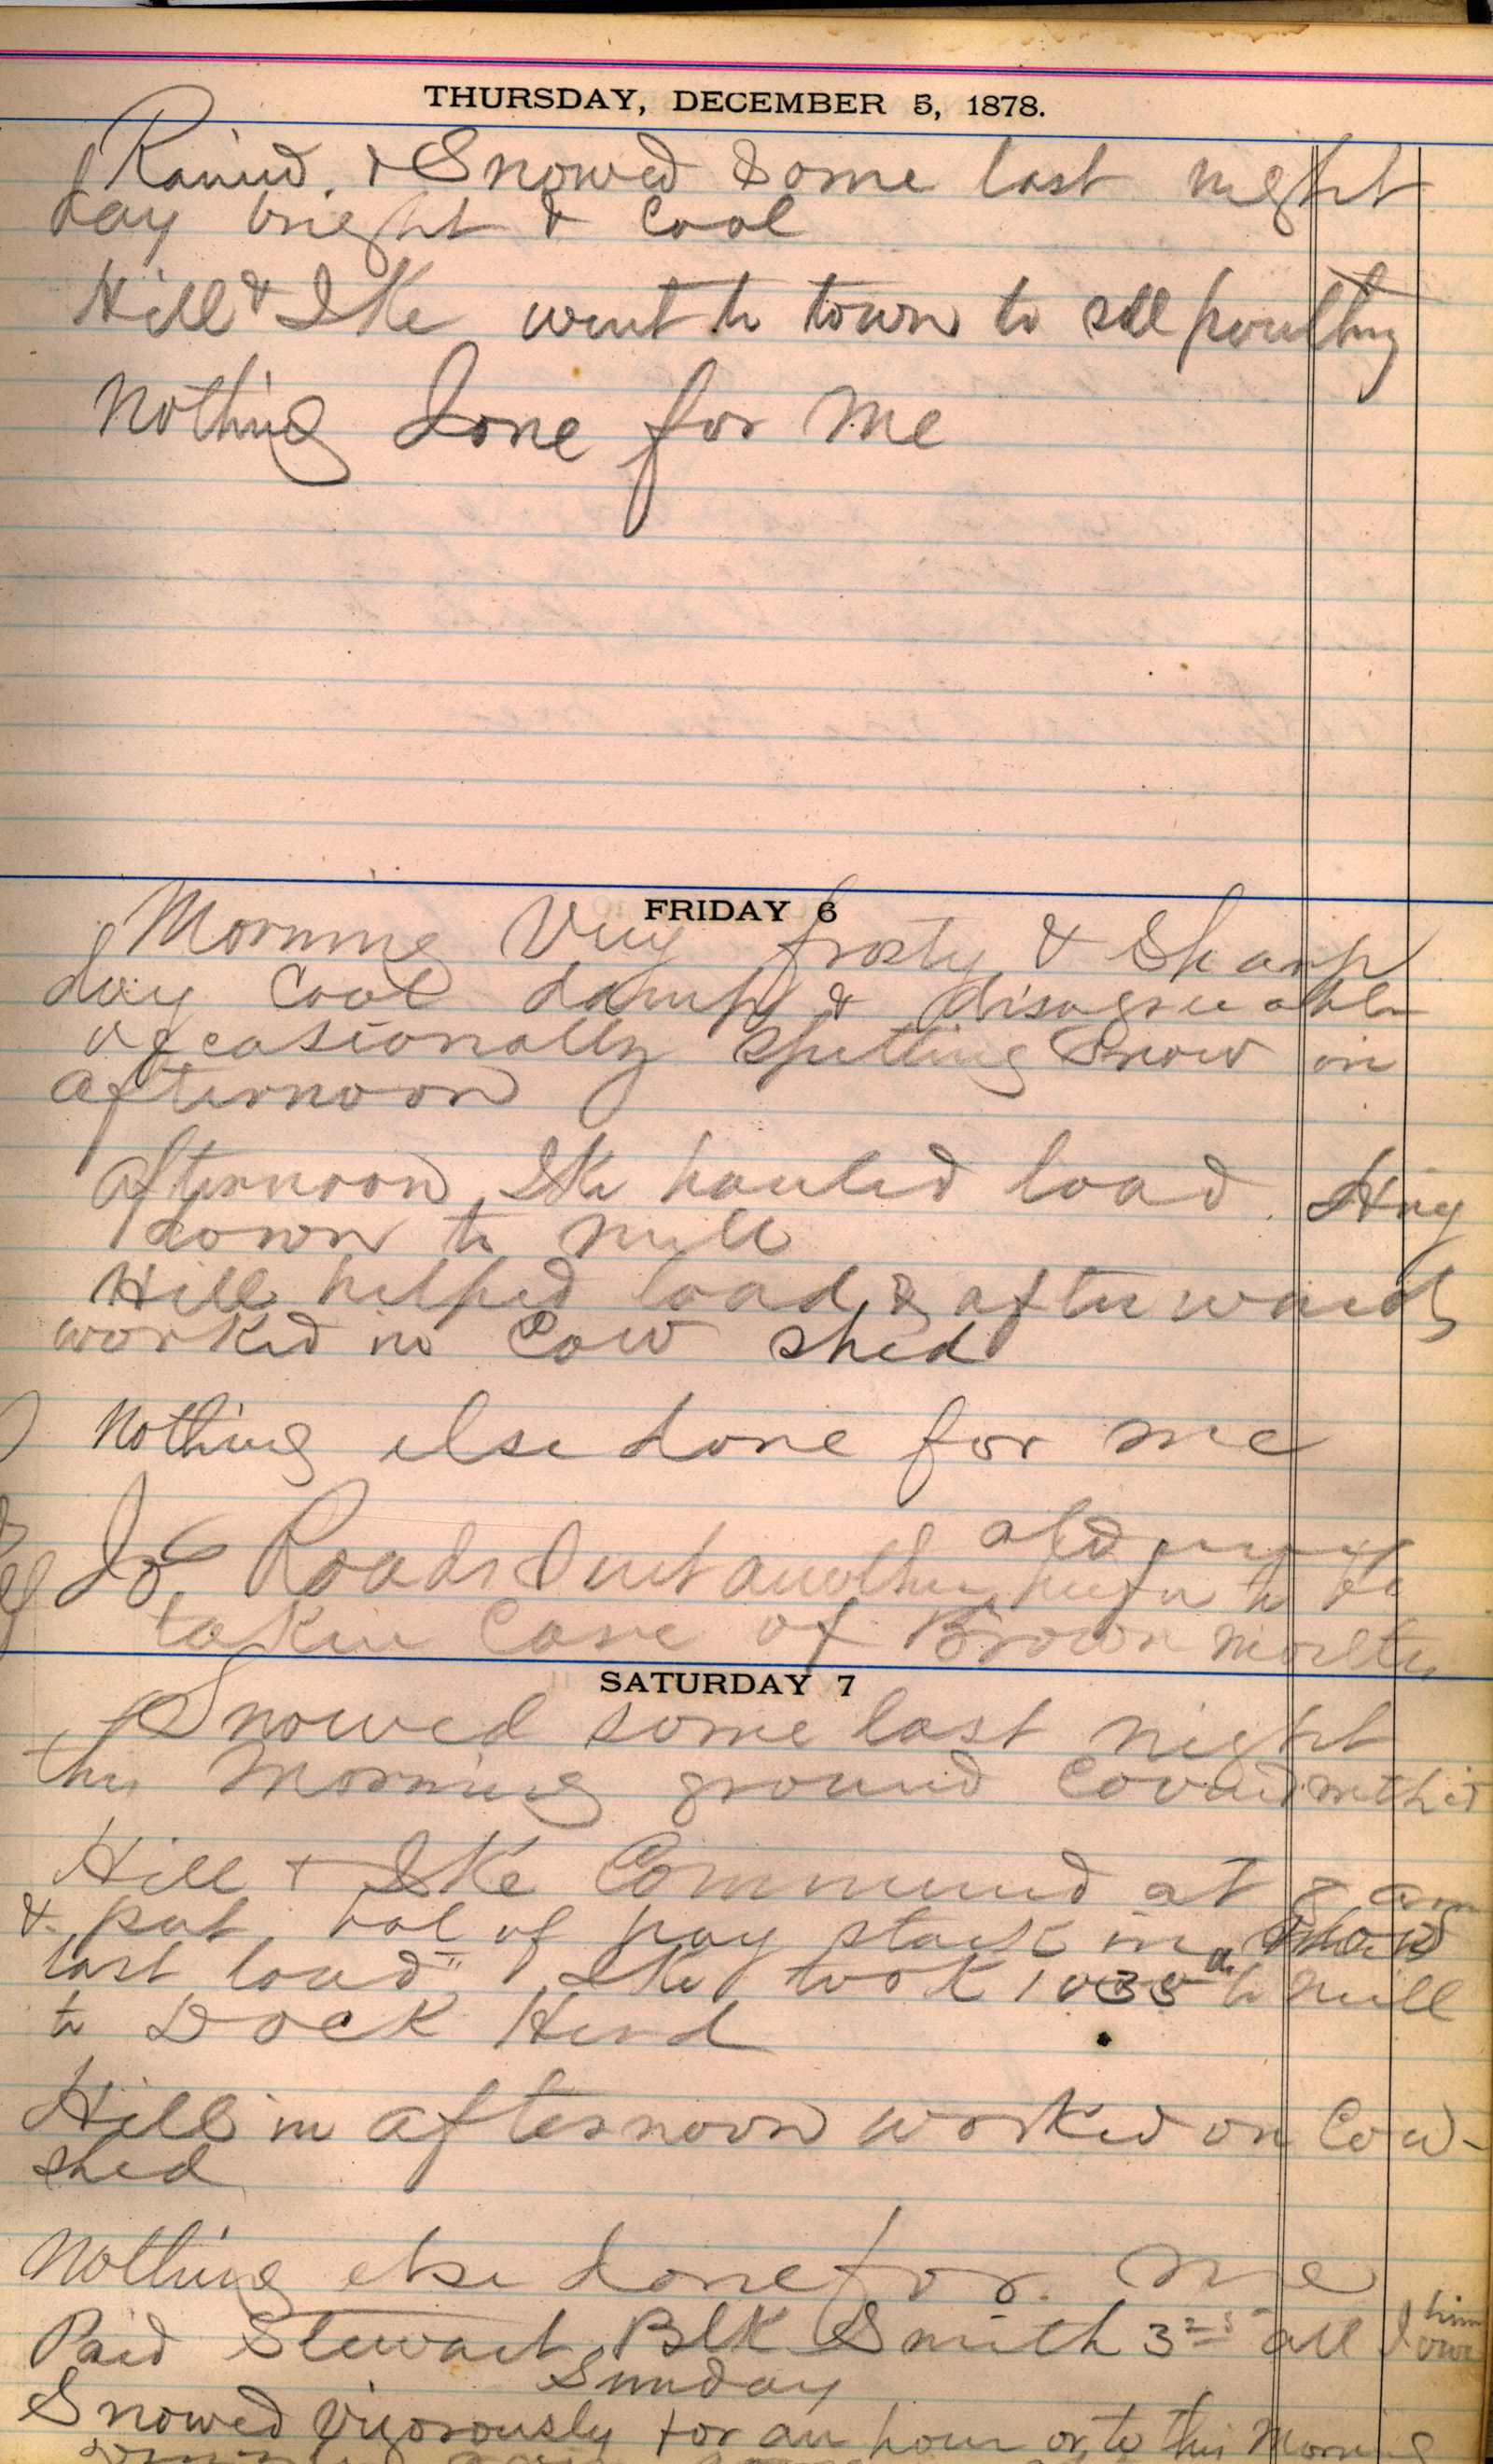 THURSDAY, DECEMBER 5, 1878.
Rained. & Snowed Some last night
day bright & Cool
Hill & Ike went to town to sell poultry
Nothing done for me
FRIDAY 6
Morning Very frosty & Sharp
day Cool damp & disagreeable
occasionally Spitting Snow in
afternoon
Afternoon Ike hauled load Hay
down to mill
Hill helped load & afterwards
worked no Cow shed
Nothing else done for me
old
Jo. Roads & another to be
taken Care of Brown
SATURDAY 7
Snowed some last night
this Morning ground Covered with it
Hill & Ike Commenced at 8 am
& put bal of hay stack in shed
last load Ike took 1035 to mill
to Dock Hurd
Hill in afternoon worked on Cow-
shed
Nothing else done for me
Paid Stewart Blk Smith 3 25 all I owe him
Sunday
Snowed Vigorously for an hour or to this Morning